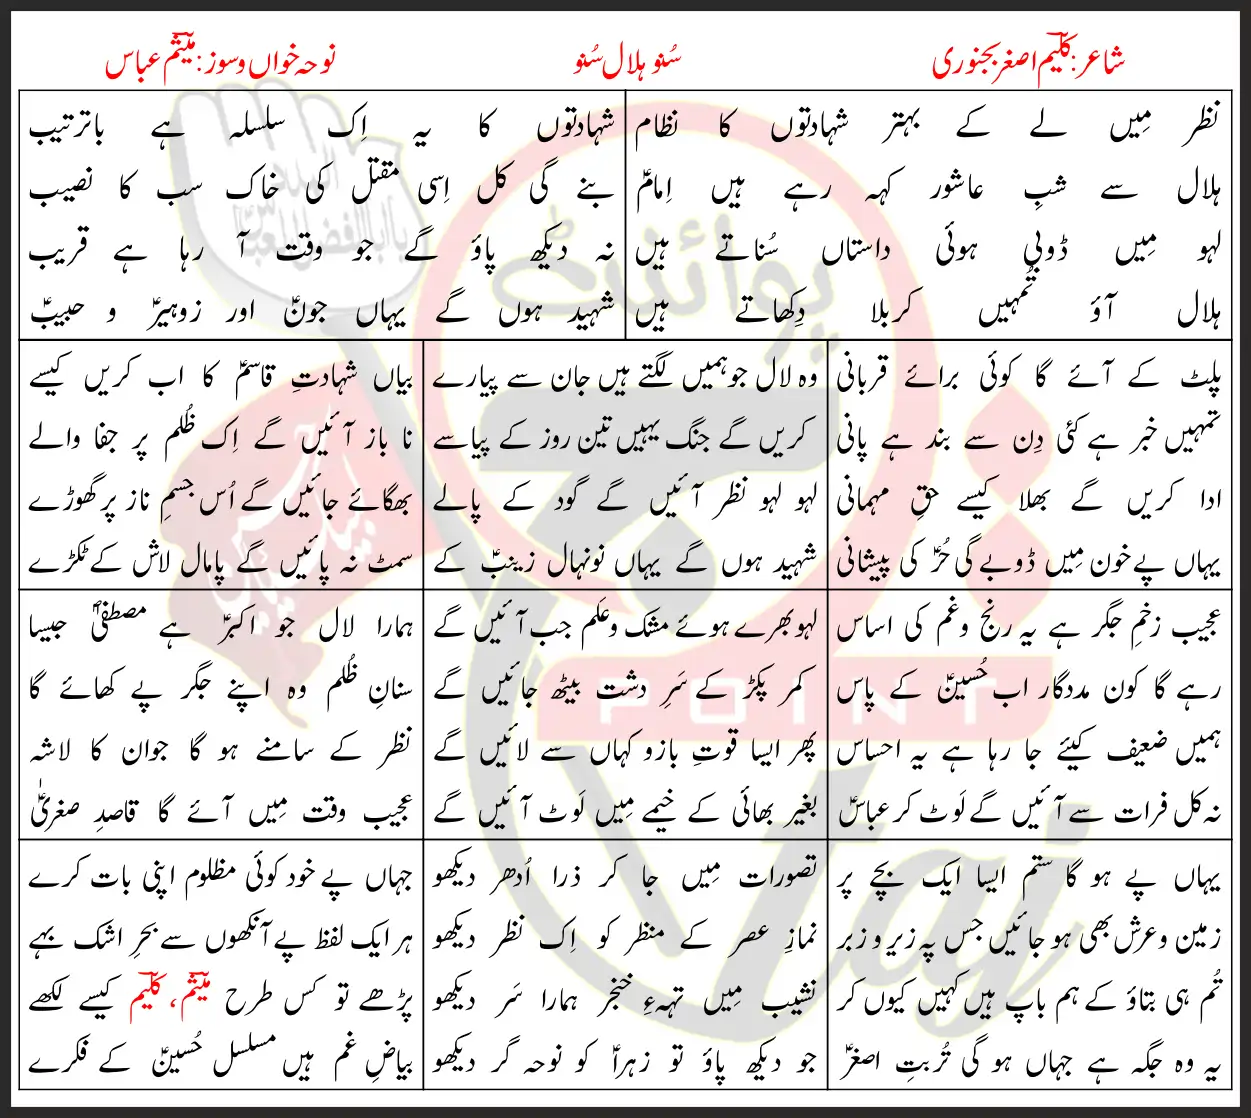 شاعر: کلیمؔ اصغر بجنوری
سُنو ہلال سُنو
نوحہ خواں و سوز: میثمؔ عباس
نظر مِیں لے کے بہتر شہادتوں کا نظام
ہلال سے شبِ عاشور کہہ رہے ہیں اِمامؑ
لہو مِیں ڈوبی ہوئی داستاں سُناتے ہیں
ہلال آؤ تُمہیں کربلا دِکھاتے ہیں
شہادتوں کا یہ اِک سلسلہ ہے باترتیب
بنے گی کل اِسی مقتل کی خاک سب کا نصیب
نہ دیکھ پاؤ گے جو وقت آ رہا ہے قریب
شہید ہوں گے یہاں جونؑ اور زوہیرؑ و حبیبؑ
پلٹ کے آئے گا کوئی برائے قربانی
تمہیں خبر ہے کئی دِن سے بند ہے پانی
ادا کریں گے بھلا کیسے حقِ مہمانی
یہاں پے خون مِیں ڈوبے گی حُرؑ کی پیشانی
وہ لال جو ہمیں لگتے ہیں جان سے پیارے
کریں گے جنگ یہیں تین روز کے پیاسے
لہو لہو نظر آئیں گے گود کے پالے
شہید ہوں گے یہاں نونہال زینبؑ کے
بیاں شہادتِ قاسمؑ کا اب کریں کیسے
نا باز آئیں گے اِک ظُلم پر جفا والے
بھگائے جائیں گے اُس جسمِ ناز پر گھوڑے
سمٹ نہ پائیں گے پامال لاش کے ٹکڑے
عجیب زخمِ جگر ہے یہ رنج و غم کی اساس
رہے گا کون مددگار اب حُسینؑ کے پاس
ہمیں ضعیف کیئے جا رہا ہے یہ احساس
نہ کل فرات سے آئیں گے لَوٹ کر عباسؑ
لہو بھرے ہوئے مشک و عَلم جب آئیں گے
کمر پکڑ کے سَرِ دشت بیٹھ جائیں گے
پھر ایسا قوتِ بازو کہاں سے لائیں گے
بغیر بھائی کے خیمے مِیں لَوٹ آئیں گے
ہمارا لال جو اکبرؑ ہے مصطفیٰؐ جیسا
سنانِ ظُلم وہ اپنے جگر پے کھائے گا
نظر کے سامنے ہو گا جوان کا لاشہ
عجیب وقت مِیں آئے گا قاصدِ صغریٰؑ
یہاں پے ہو گا ستم ایسا ایک بچے پر
زمین و عرش بھی ہو جائیں جس پہ زیر و زبر
تُم ہی بتاؤ کے ہم باپ ہیں کہیں کیوں کر
یہ وہ جگہ ہے جہاں ہو گی تُربتِ اصغرؑ
تصورات مِیں جا کر ذرا اُدھر دیکھو
نمازِ عصر کے منظر کو اِک نظر دیکھو
نشیب مِیں تہہءِ خنجر ہمارا سَر دیکھو
جو دیکھ پاؤ تو زہراؑ کو نوحہ گر دیکھو
جہاں پے خود کوئی مظلوم اپنی بات کرے
ہر ایک لفظ پے آنکھوں سے بحرِ اشک بہے
پڑھے تو کس طرح میثمؔ، کلیمؔ کیسے لکھے
بیاضِ غم ہیں مسلسل حُسینؑ کے فکرے
پوائنٹ
POINT